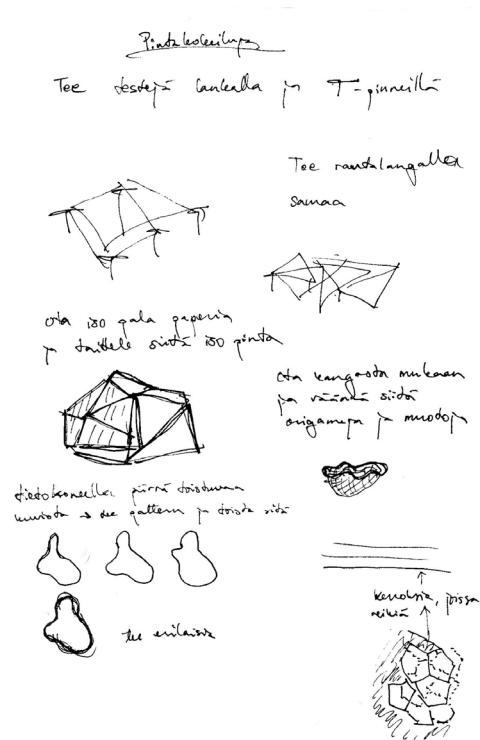 Pintakokeiluja
Tee testejä langalla ja T-pinneillä
Tee rautalangalla
samaa
Ota iso pala paperia
ja taittele siitä iso pinta
Ota kangasta mukaan
ja väännä siitä
origameja ja muotoja
tietokoneella piirrä toistuvaa
muotoa → tee pattern ja toista sitä
tee erilaisia
kerroksia, joissa
reikiä